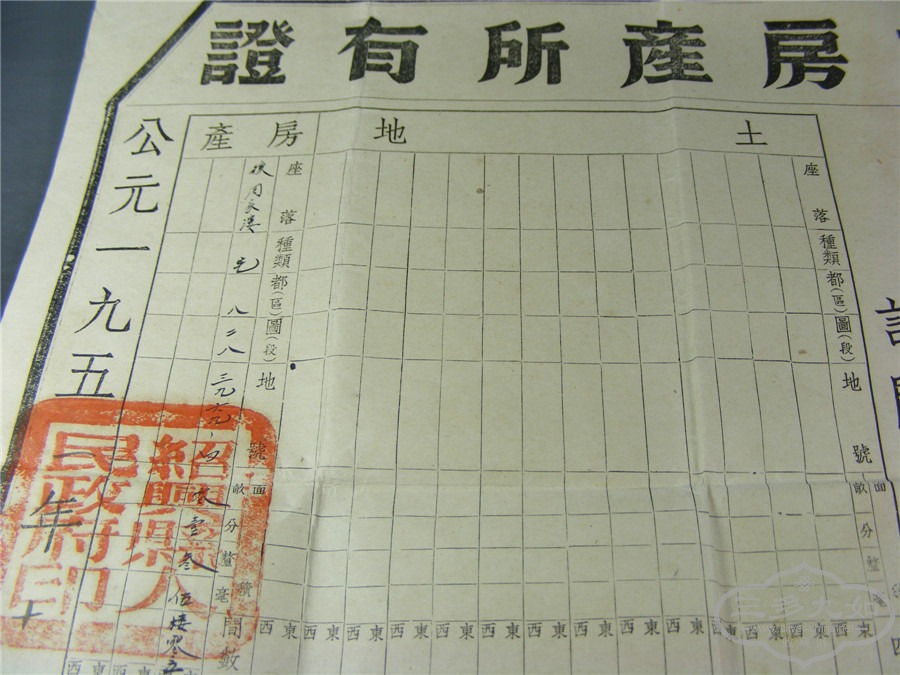 房產所有證
土地
房產
座落
種類
都(區)圖(段)
地號
面積
畝分釐毫
東西東西東西東西東西東西東西東西東西東西東西東西
座落
種類
都(區)圖(段)
地號
面積
畝分釐毫
間數
周家漊
八
八
壹叁
伍楼
東西東西
公元一九五一年十
紹興縣人民政府印
三多大如